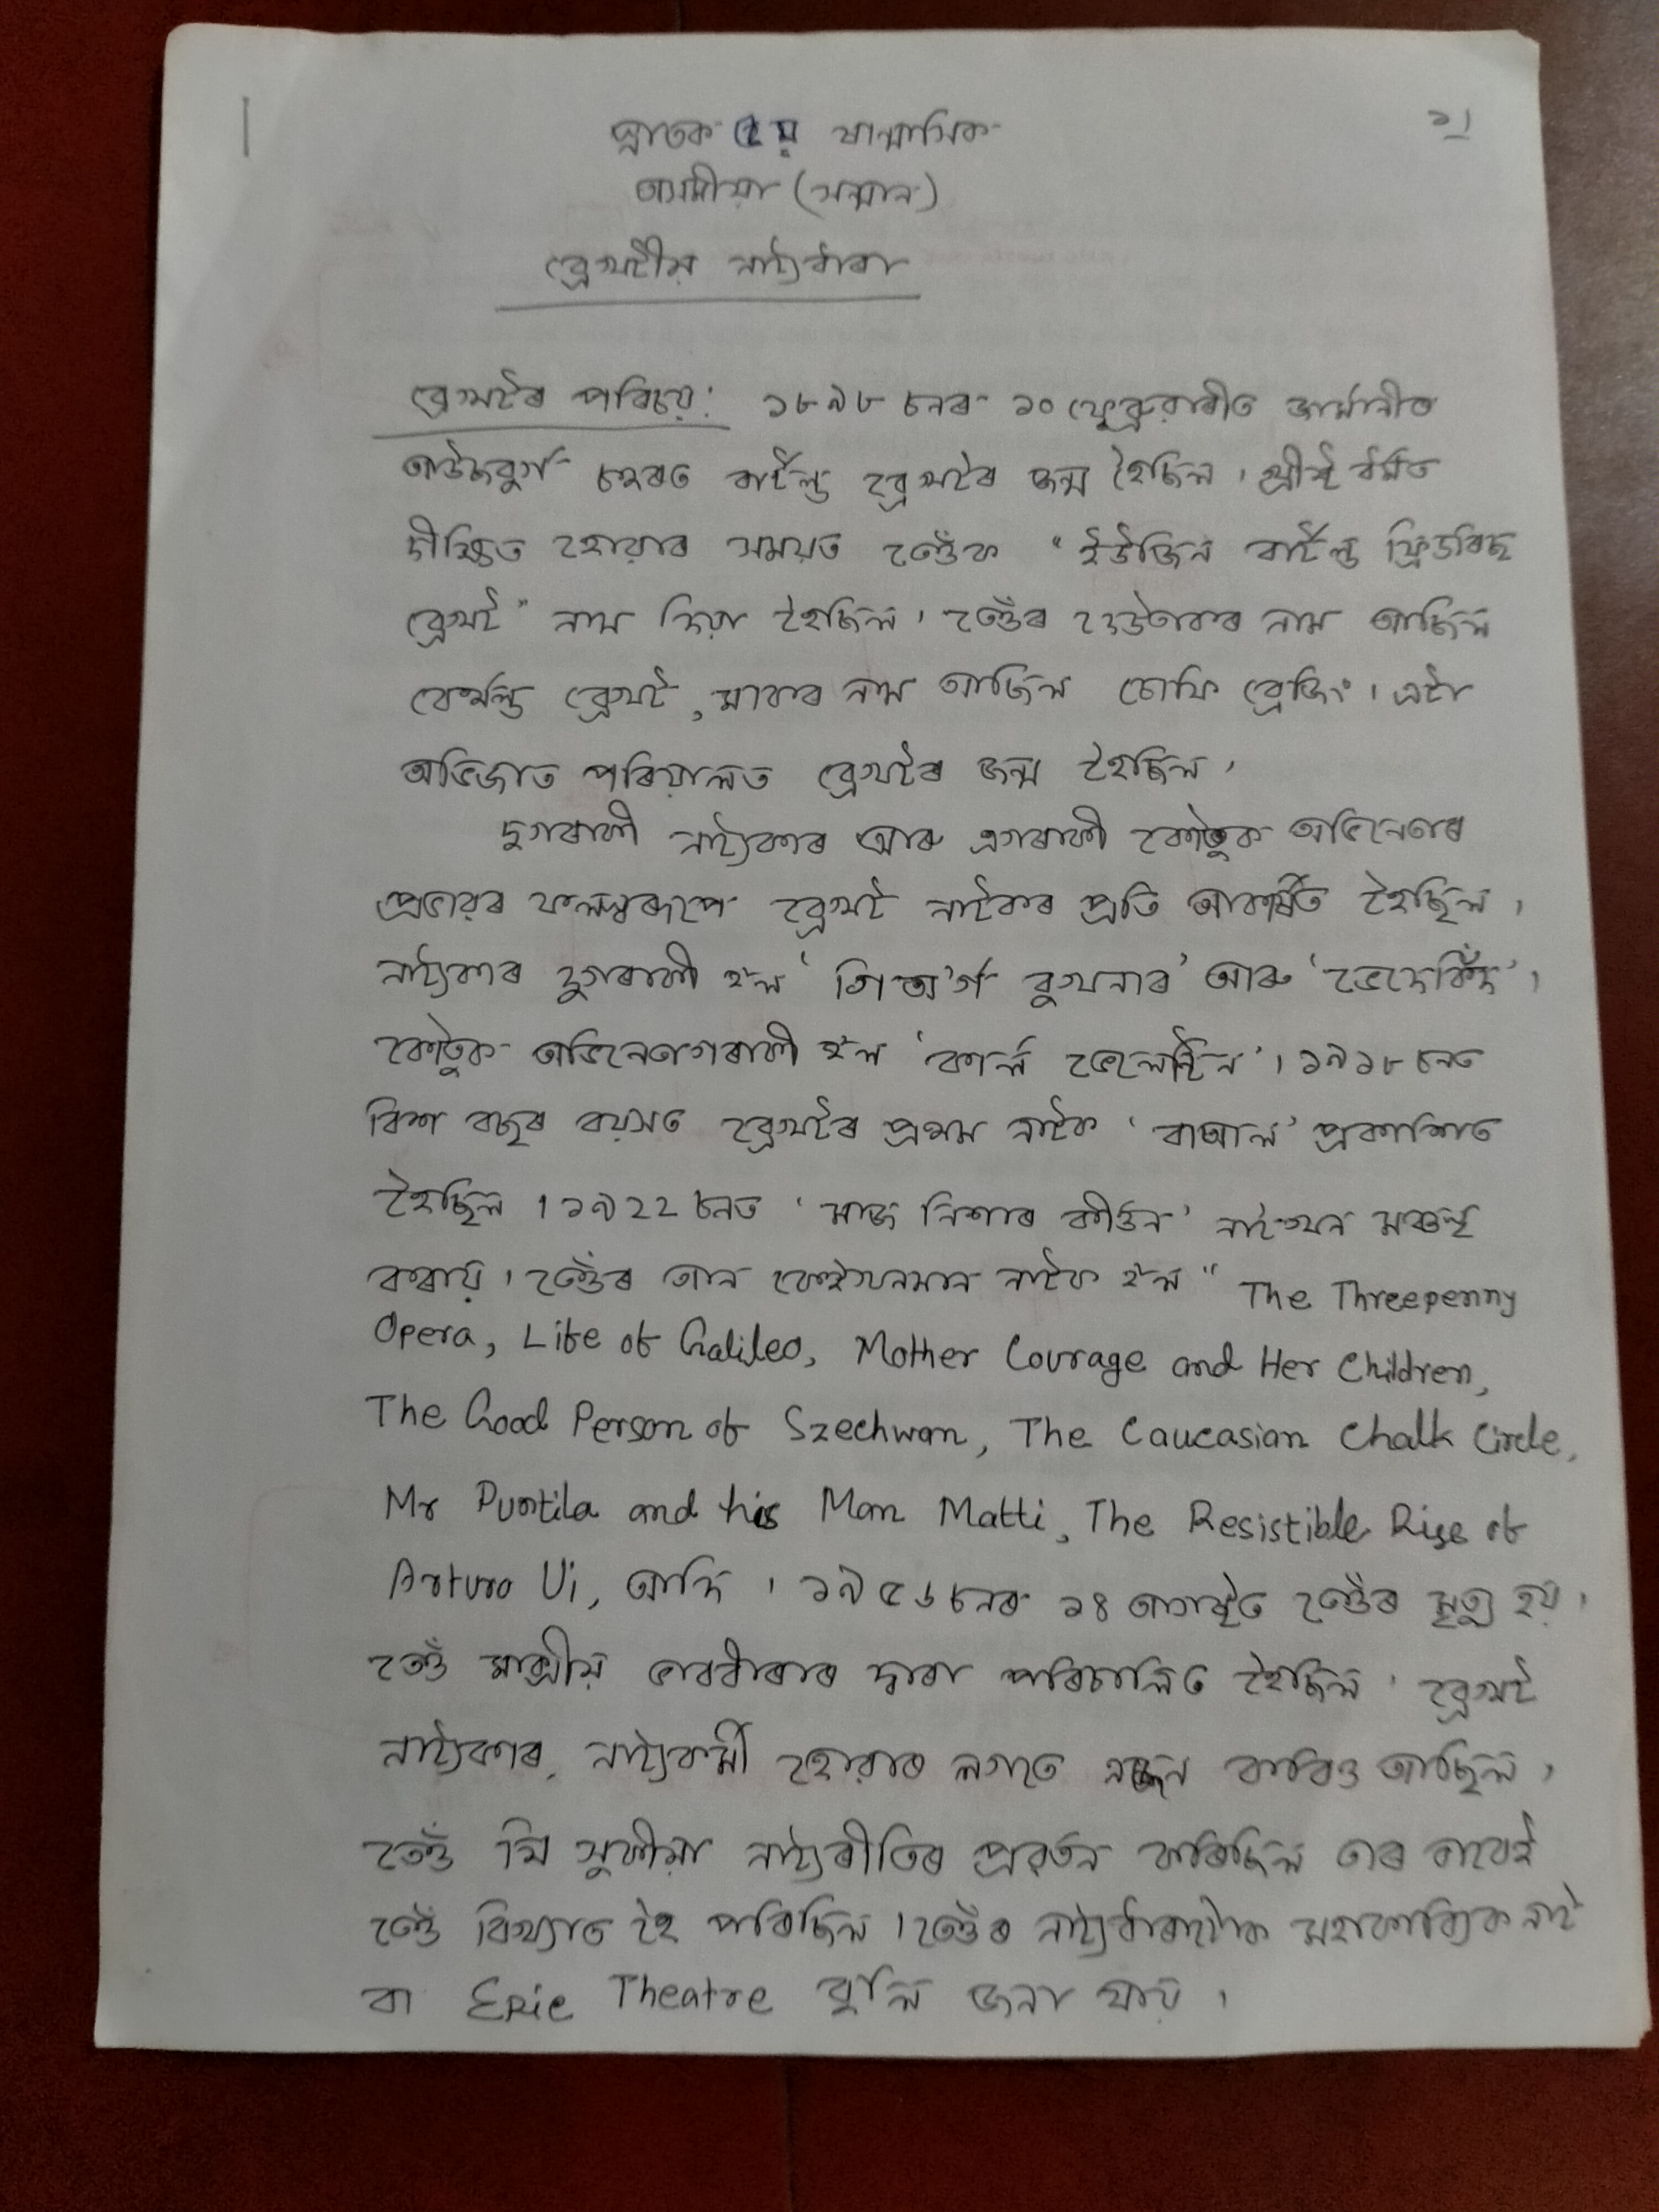 ১।
স্নাতক ৫ম ষান্মাসিক
অসমীয়া (সন্মান)
ব্ৰেখটীয় নাট্যধাৰা
ব্ৰেখটৰ পৰিচয়: ১৮৯৮ চনৰ ১০ ফেব্ৰুৱাৰীত জাৰ্মানীৰ
আউজবুৰ্গ চহৰত বাৰ্টল্ড ব্ৰেখটৰ জন্ম হৈছিল। খ্ৰীষ্ট ধৰ্মত
দীক্ষিত হোৱাৰ সময়ত তেওঁক "ইউজিন বাৰ্টল্ড ফ্ৰিডৰিছ
ব্ৰেখট" নাম দিয়া হৈছিল। তেওঁৰ দেউতাকৰ নাম আছিল
বেৰ্থল্ড ব্ৰেখট, মাকৰ নাম আছিল চোফি ব্ৰেজিং। এটা
অভিজাত পৰিয়ালত ব্ৰেখটৰ জন্ম হৈছিল।
দুগৰাকী নাট্যকাৰ আৰু এগৰাকী কৌতুক অভিনেতাৰ
প্ৰভাৱৰ ফলস্বৰূপে ব্ৰেখট নাটকৰ প্ৰতি আকৰ্ষিত হৈছিল।
নাট্যকাৰ দুগৰাকী হ'ল 'গিঅ'ৰ্গ বুখনাৰ' আৰু 'ভেদেকিঁদ'।
কৌতুক অভিনেতাগৰাকী হ'ল 'কাৰ্ল ভেলেন্টিন'। ১৯১৮ চনত
বিশ বছৰ বয়সত ব্ৰেখটৰ প্ৰথম নাটক 'বাআল' প্ৰকাশিত
হৈছিল। ১৯২২ চনত 'মাজ নিশাৰ কীৰ্তন' নাটখন মঞ্চস্থ
কৰায়। তেওঁৰ আন কেইখনমান নাটক হ'ল "The Threepenny
Opera, Life of Galileo, Mother Courage and Her Children,
The Good Person of Szechwan, The Caucasian Chalk Circle,
Mr Puntila and his Man Matti, The Resistible Rise of
Arturo Ui, আদি। ১৯৫৬ চনৰ ১৪ আগষ্টত তেওঁৰ মৃত্যু হয়।
তেওঁ মাৰ্ক্সীয় ভাবধাৰাৰ দ্বাৰা পৰিচালিত হৈছিল। ব্ৰেখট
নাট্যকাৰ, নাট্যকৰ্মী হোৱাৰ লগতে এজন কবিও আছিল।
তেওঁ যি সুকীয়া নাট্যৰীতিৰ প্ৰৱৰ্তন কৰিছিল তাৰ বাবেই
তেওঁ বিখ্যাত হৈ পৰিছিল। তেওঁৰ নাট্যধাৰাটোক মহাকাব্যিক নাট
বা Epic Theatre বুলি জনা যায়।